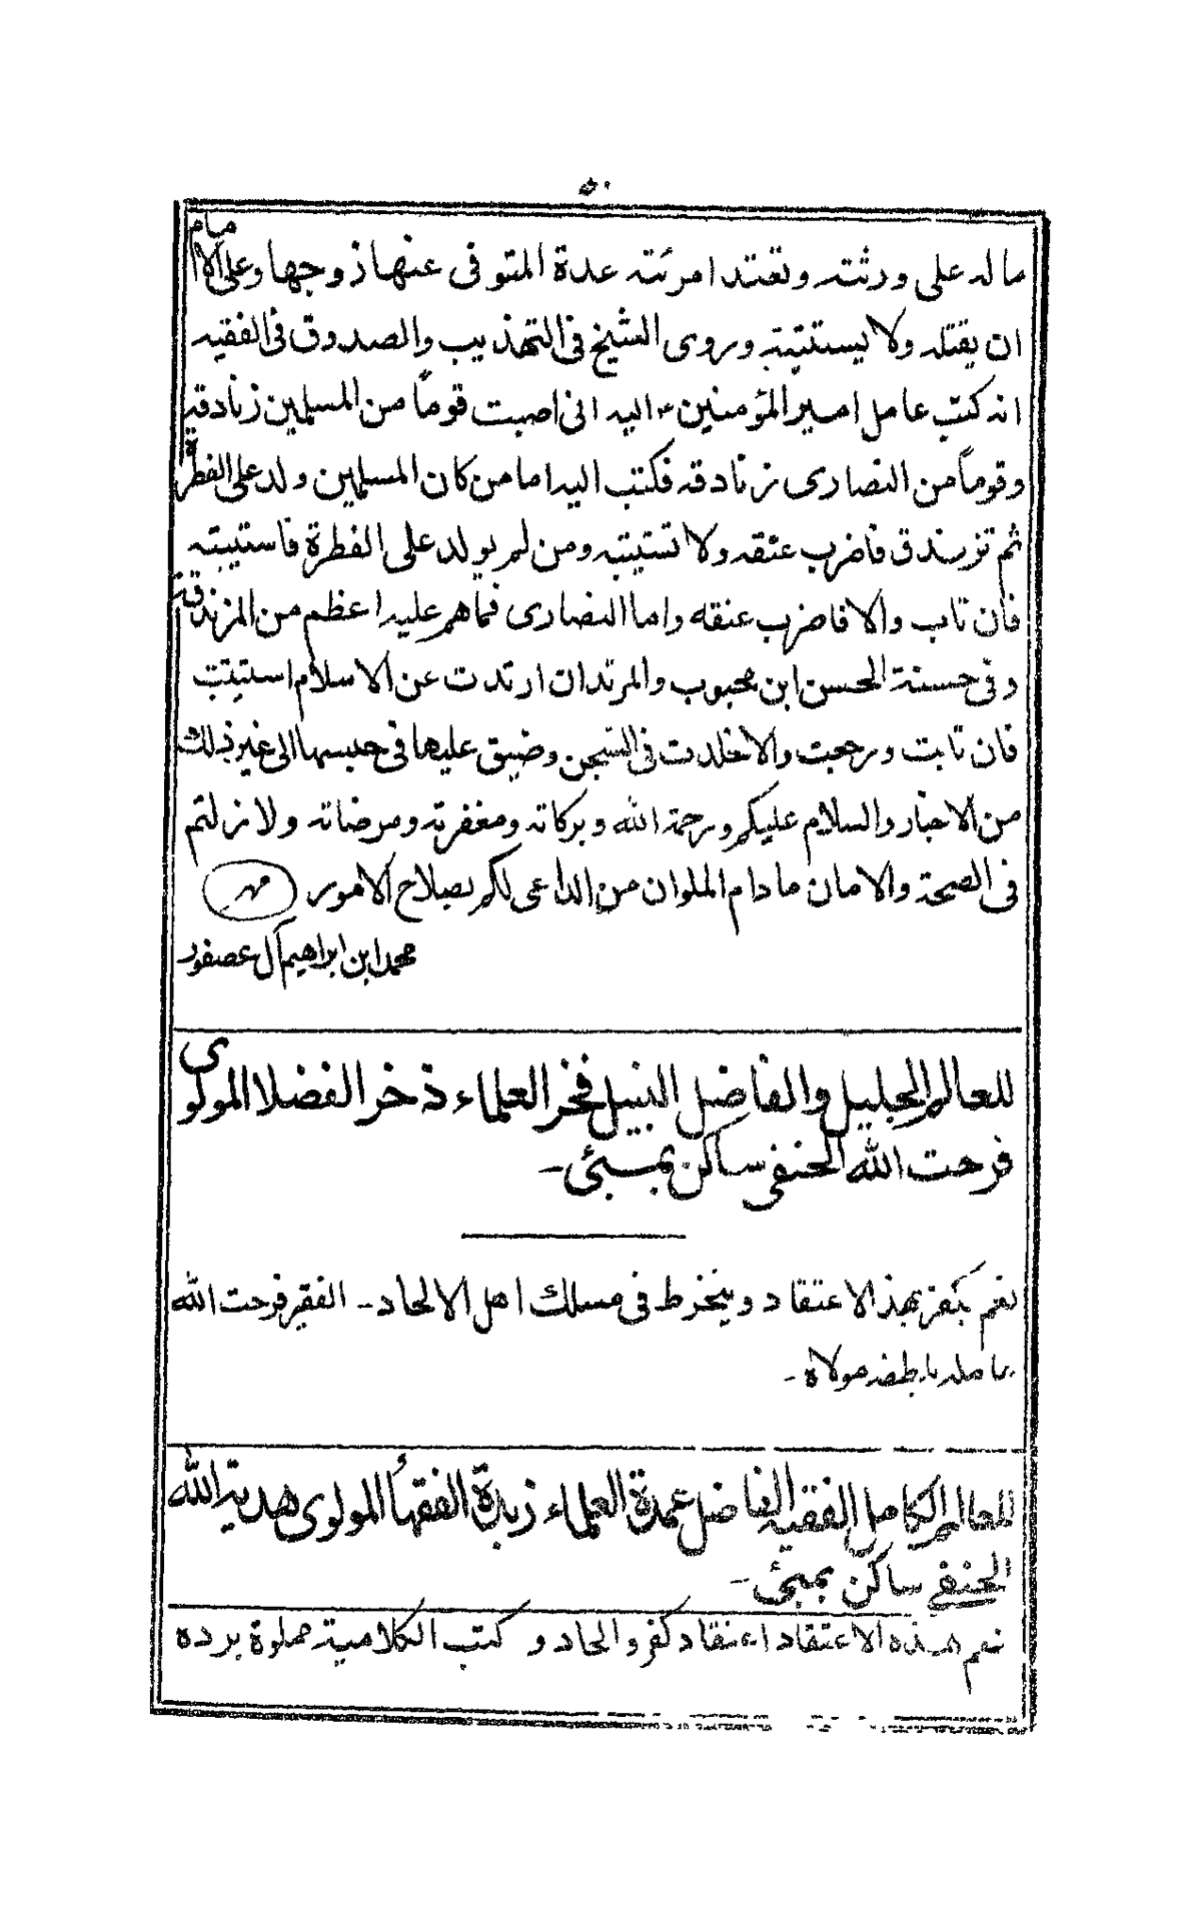 ۵۰
ماله على ورثته وتعتد امرئته عدة المتوفى عنها زوجها وعلى الامام
ان يقتله ولا يستتيبه وروى الشيخ فى التهذيب والصدوق فى الفقيه
انه كتب عامل امير المؤمنين ع اليه انى اصبت قوماً من المسلمين زنادقة
وقوماً من النصارى زنادقه فكتب اليه اما من كان المسلمين ولد على الفطرة
ثم تزندق فاضرب عنقه ولا تستتبه ومن لم يولد على الفطرة فاستتيبه
فان تاب والا فاضرب عنقه واما النصارى فما هم عليه اعظم من الزندقة
وفى حسنة الحسن ابن محبوب والمرتد ان ارتدت عن الاسلام استتيبت
فان تابت ورجعت والا خلدت فى السجن وضيق عليها فى حبسها الى غير ذلك
من الاخبار والسلام عليكم ورحمة الله وبركاته ومغفرته ومرضاته ولا زلتم
فى الصحة والامان مادام الملوان من الداعى لكم بصلاح الامور مهر
محمد ابن ابراهيم آل عصفور
للعالم الجليل والفاضل النبيل فخر العلماء ذخر الفضلا المولوى
فرحت الله الحنفى ساكن بمبئى -
نعم يكفر بهذ الاعتقاد وينخرط فى مسلك اهل الالحاد - الفقير فرحت الله
عامله بلطفه مولاه -
للعالم الكامل الفقيه الفاضل عمدة العلماء زبدة الفقهأ المولوى هدية الله
الحنفے ساكن بمبئى -
نعم هذه الاعتقاد اعتقاد كفر والحاد و كتب الكلامية مملوة برده